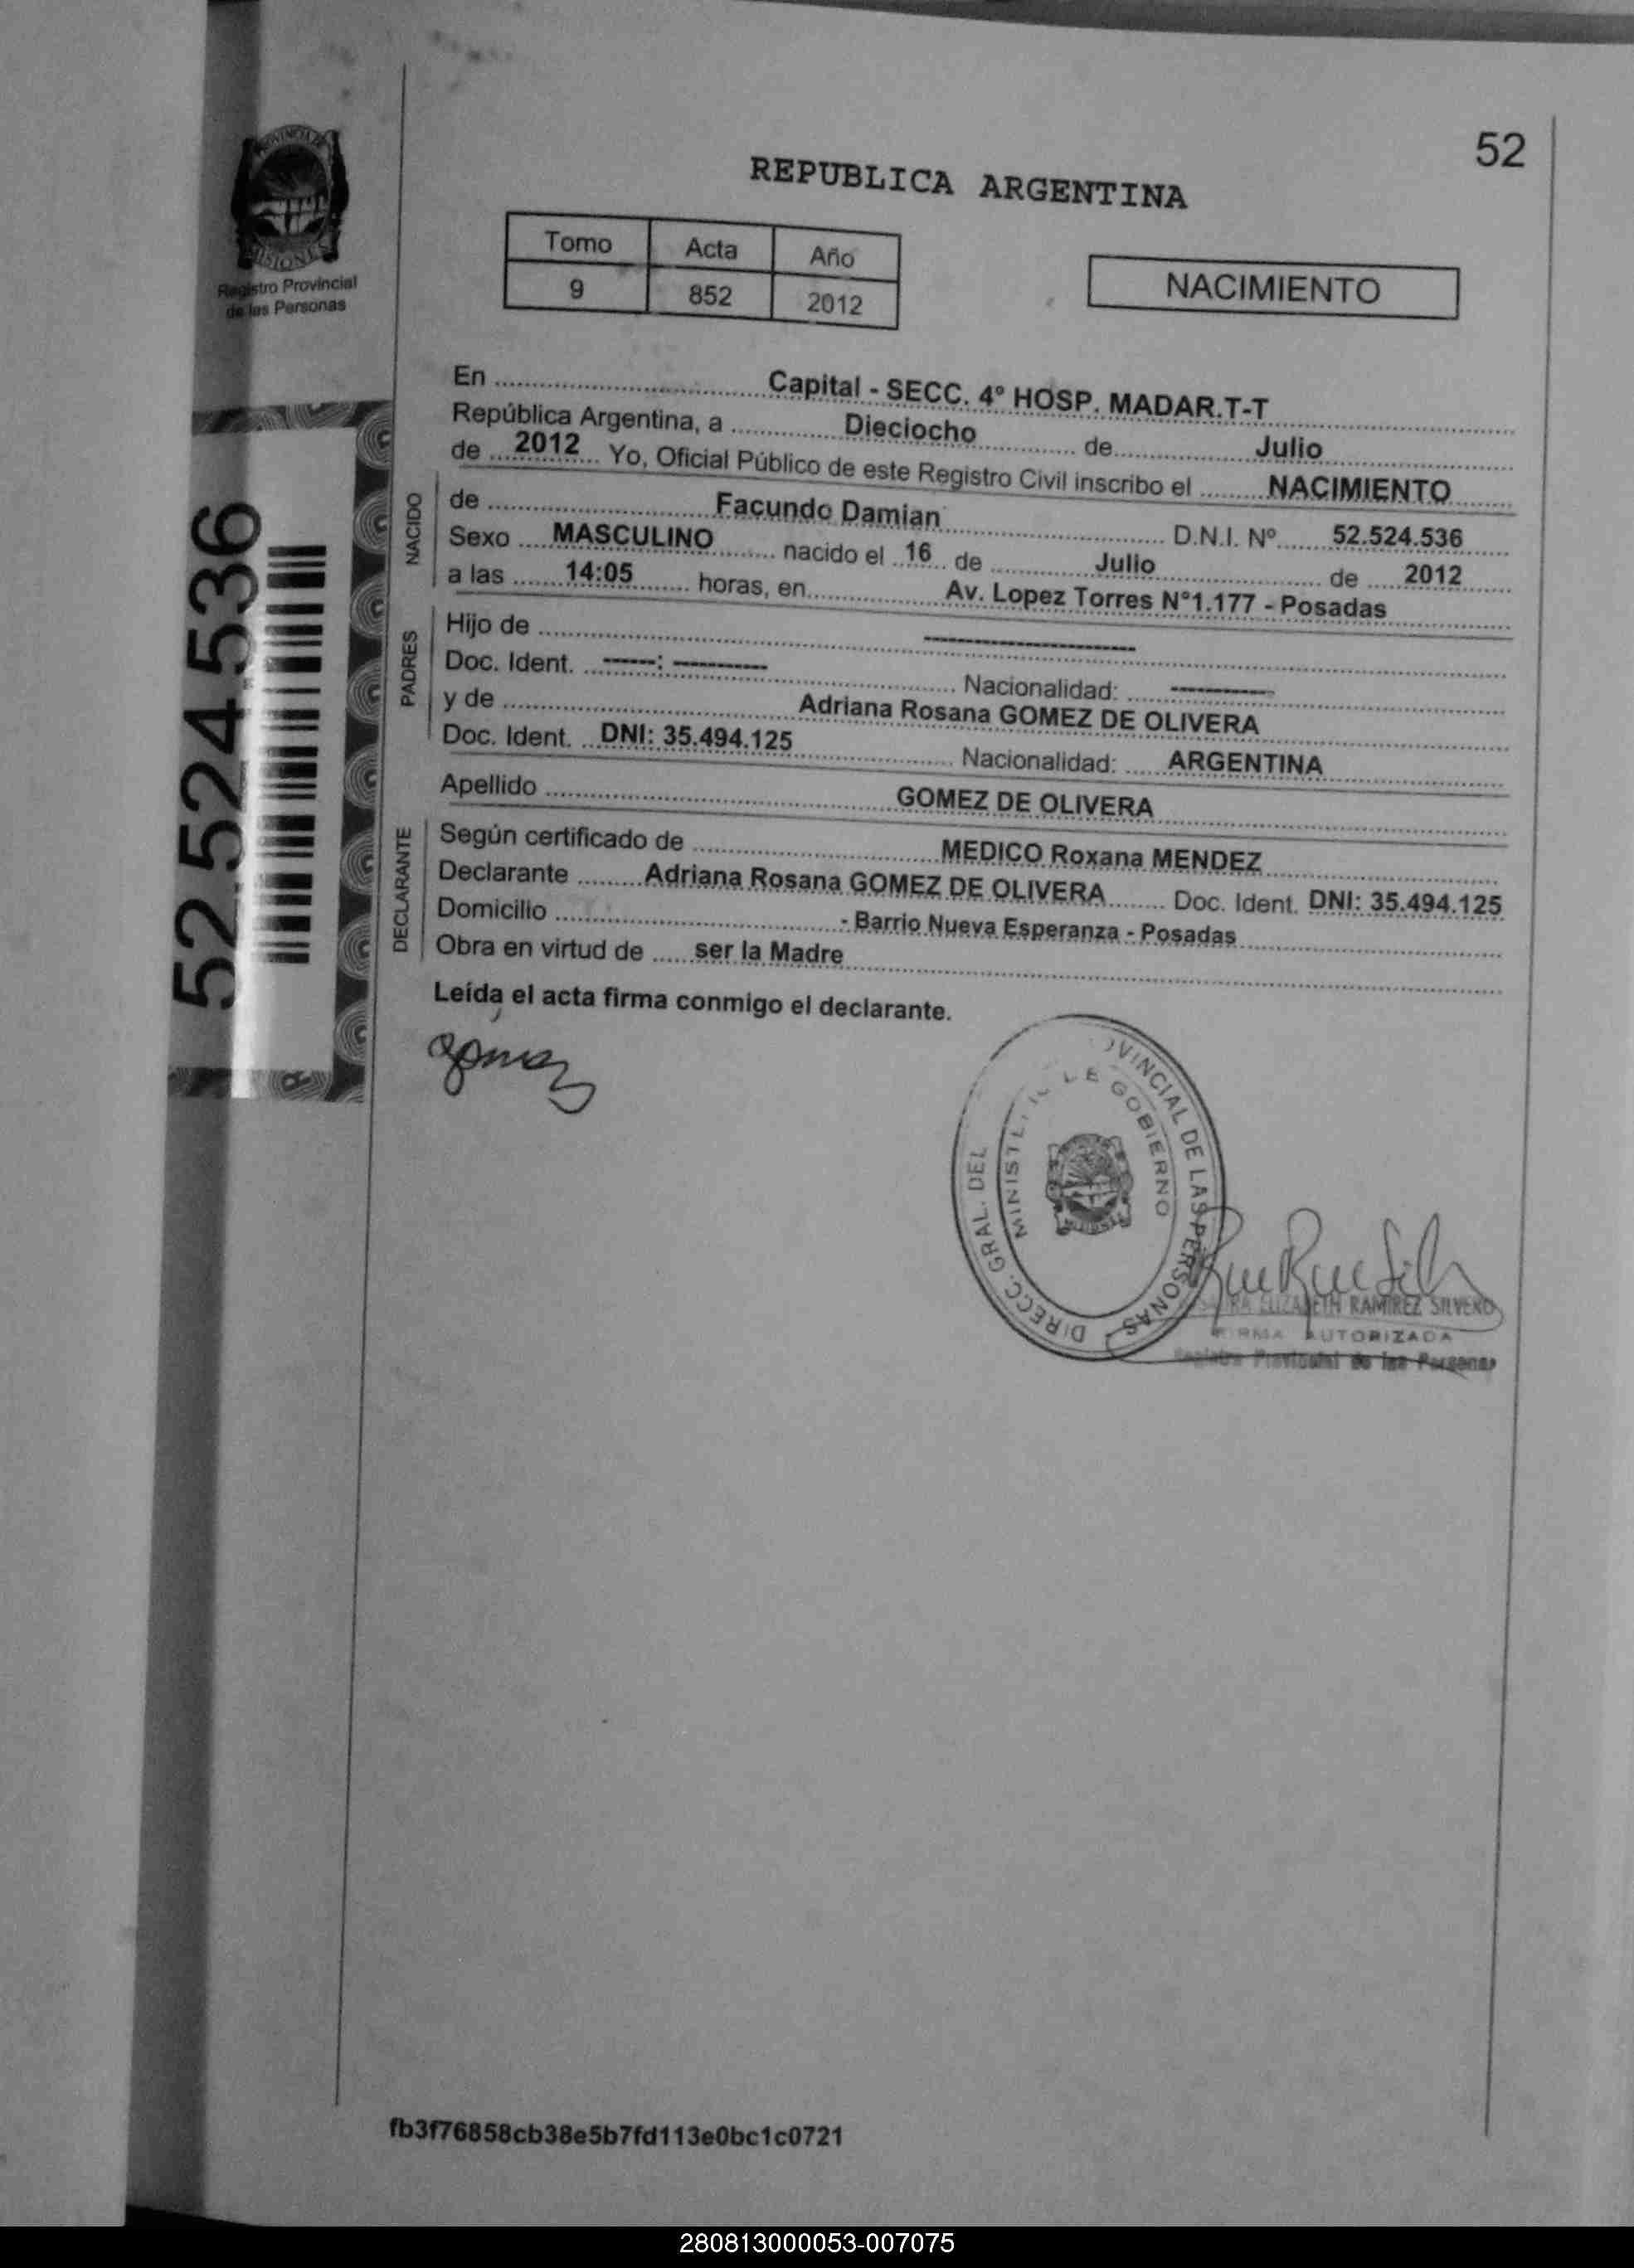 52
PROVINCIA DE
MISIONES
Registro Provincial
de las Personas
REPUBLICA ARGENTINA
Tomo Acta Año
9 852 2012
NACIMIENTO
En Capital - SECC. 4º HOSP. MADAR.T-T
República Argentina, a Dieciocho de Julio
de 2012 Yo, Oficial Público de este Registro Civil inscribo el NACIMIENTO
NACIDO
de Facundo Damian D.N.I. Nº 52.524.536
Sexo MASCULINO nacido el 16 de Julio de 2012
a las 14:05 horas, en Av. Lopez Torres N°1.177 - Posadas
PADRES
Hijo de ----------
Doc. Ident. -----: --------- Nacionalidad: ----------
y de Adriana Rosana GOMEZ DE OLIVERA
Doc. Ident. DNI: 35.494.125 Nacionalidad: ARGENTINA
Apellido GOMEZ DE OLIVERA
DECLARANTE
Según certificado de MEDICO Roxana MENDEZ
Declarante Adriana Rosana GOMEZ DE OLIVERA Doc. Ident. DNI: 35.494.125
Domicilio - Barrio Nueva Esperanza - Posadas
Obra en virtud de ser la Madre
Leída el acta firma conmigo el declarante.
52.524.536
Gomez
DIRECC. GRAL. DEL PROVINCIAL DE LAS PERSONAS
MINISTERIO DE GOBIERNO
ELIZABETH RAMIREZ SILVERO
FIRMA AUTORIZADA
Registro Provincial de las Personas
fb3f76858cb38e5b7fd113e0bc1c0721
280813000053-007075